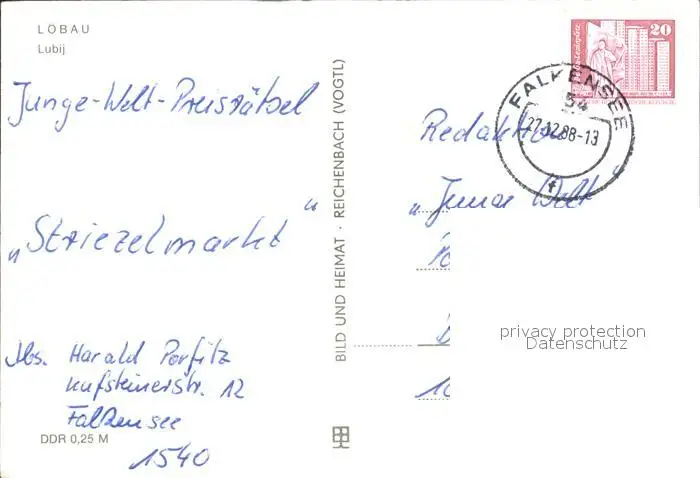 LÖBAU
Lubij
Junge-Welt-Preisrätsel
"Striezelmarkt"
Abs. Harald Porfitz
Kufsteinerstr. 12
Falkensee
1540
DDR 0,25 M
BILD UND HEIMAT · REICHENBACH (VOGTL)
20
FALKENSEE
54
27.12.88-13
f
Redaktion
"Junge Welt"
privacy protection
Datenschutz